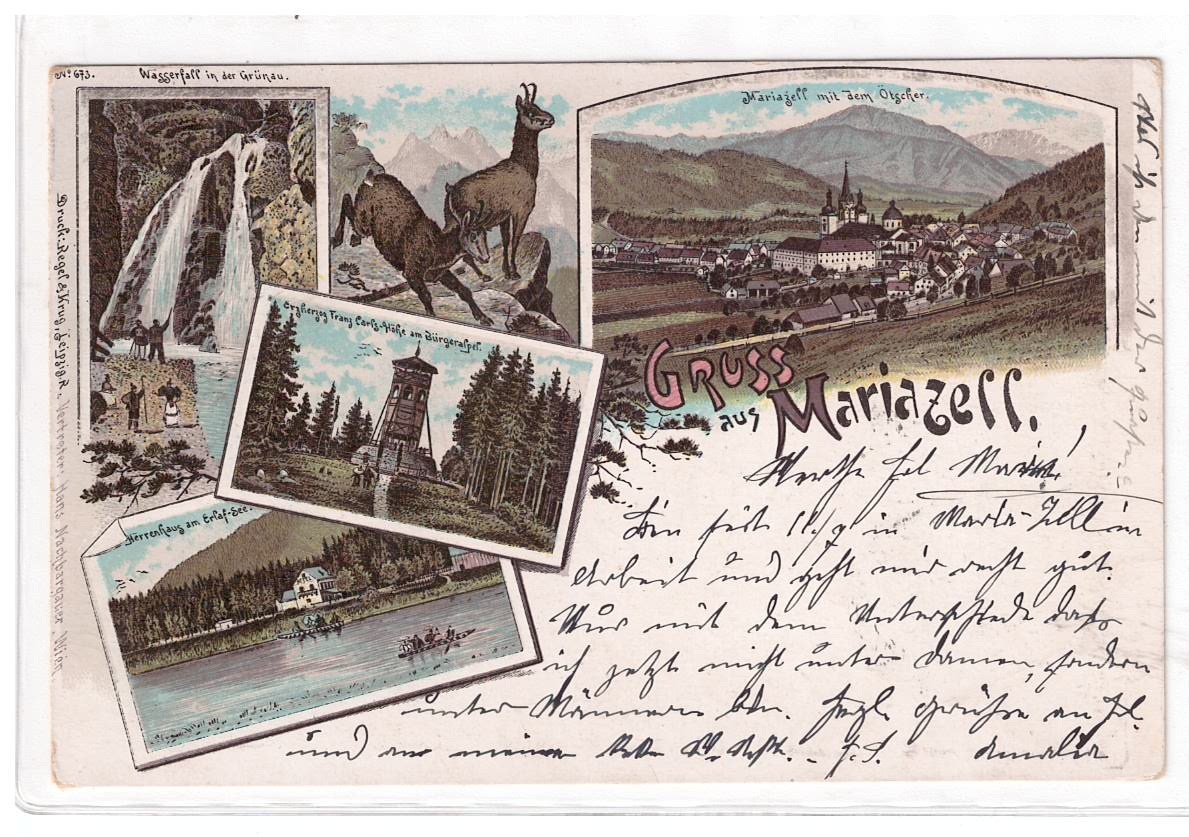 No 673.
Wasserfall in der Grünau.
Mariazell mit dem Ötscher.
Erzherzog Franz Carls-Höhe am Bürgeralpel.
Herrenhaus am Erlaf-See.
Druck: Regel & Krug, Leipzig-R., Vertreter: Hans Nachbargauer, Wien.
GRUSS
aus Mariazell.
Werthe Frl. Marie!
Bin seit 11./7 in Maria-Zell in
Arbeit und geht mir recht gut.
Nur mit dem Unterschiede daß
ich jetzt nicht unter Damen, sondern
unter Männern bin. Herzl. Grüße an Frl.
und an meine
Amalia